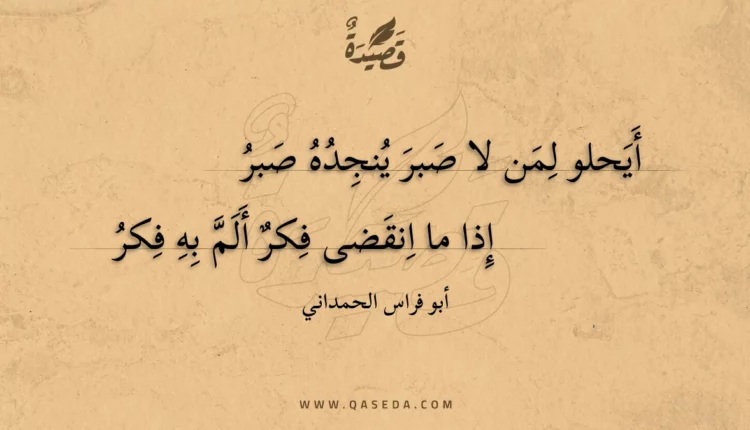 قَصِيدَةٌ
أَيَحلو لِمَن لا صَبرَ يُنجِدُهُ صَبرُ
إِذا ما اِنقَضى فِكرٌ أَلَمَّ بِهِ فِكرُ
أبو فراس الحمداني
WWW.QASEDA.COM